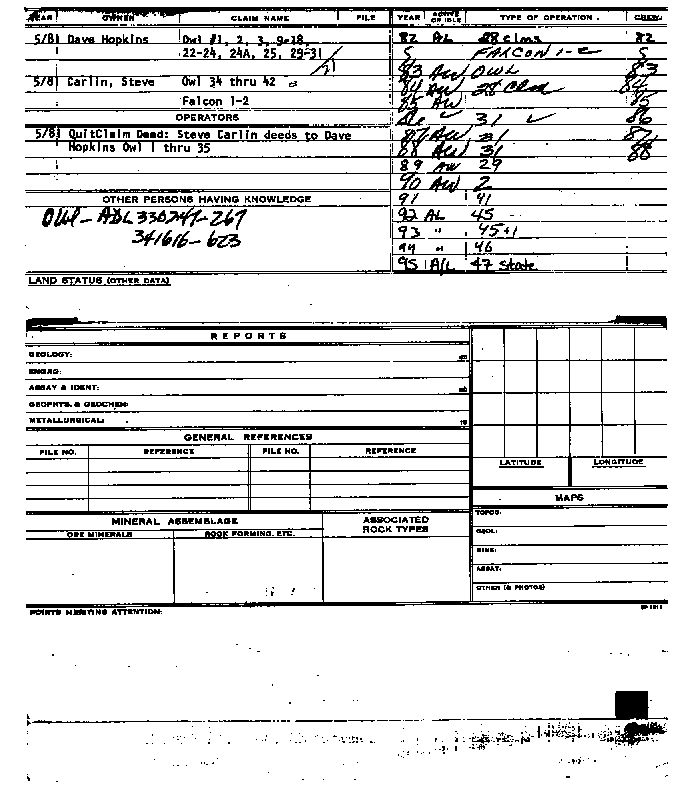 YEAR OWNER CLAIM NAME FILE YEAR ACTIVE OR IDLE TYPE OF OPERATION CREW
5/81 Dave Hopkins Owl #1, 2, 3, 9-18, 82 AL 28 clms 82
22-24, 24A, 25, 29-31 S FALCON 1-2 S
83 AW OWL 83
5/81 Carlin, Steve Owl 34 thru 42 84 AW 28 Clm 84
Falcon 1-2 85 AW 85
OPERATORS 31 86
5/81 QuitClaim Dead: Steve Carlin deeds to Dave 87 AW 31 87
Hopkins Owl 1 thru 35 88 AW 31 88
89 AW 29
90 AW 2
OTHER PERSONS HAVING KNOWLEDGE 91 41
OWL - ADL 330247-267 92 AL 45
341616-623 93 " 45+1
94 " 46
95 A/L 47 state
LAND STATUS (OTHER DATA)
REPORTS
GEOLOGY:
ENGRG:
ASSAY & IDENT:
GEOPHYS. & GEOCHEM:
METALLURGICAL:
GENERAL REFERENCES
FILE NO. REFERENCE FILE NO. REFERENCE
LATITUDE LONGITUDE
MAPS
MINERAL ASSEMBLAGE ASSOCIATED ROCK TYPES
ORE MINERALS ROCK FORMING, ETC.
TOPOG:
GEOL:
MINE:
ASSAY:
OTHER (& PHOTOS)
POINTS MEETING ATTENTION: